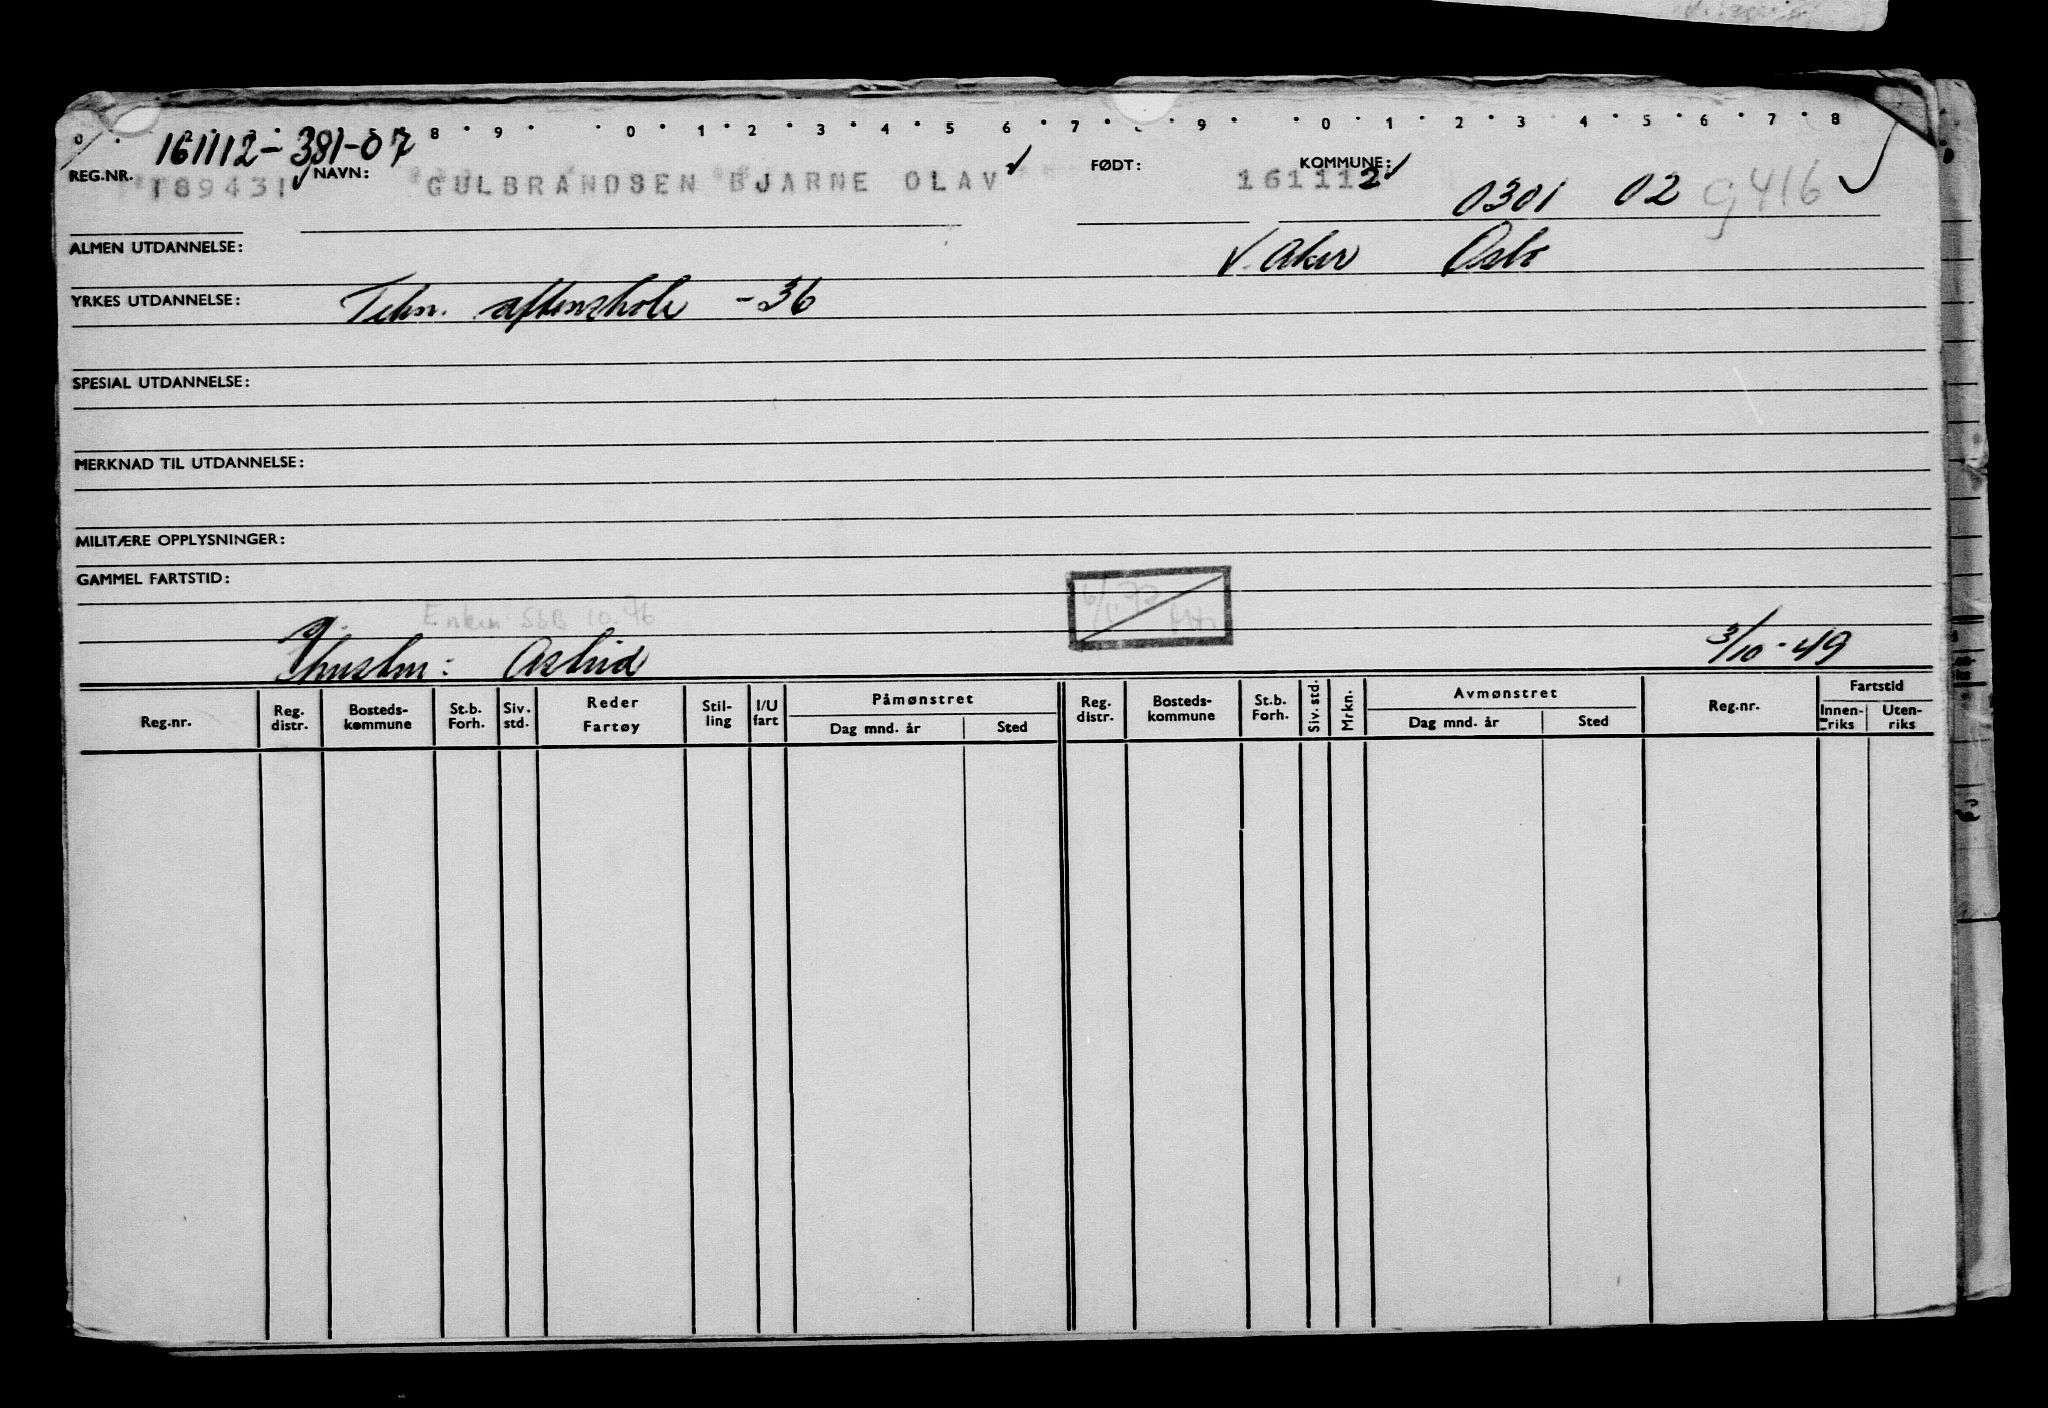 0 8 9 0 1 2 3 4 5 6 7 9 0 1 2 3 4 5 6 7 8
161112-381-07
REG.NR. 189431 NAVN: GULBRANDSEN BJARNE OLAV FØDT: 161112 KOMMUNE: 0301 02 G416
ALMEN UTDANNELSE: V. Aker Oslo
YRKES UTDANNELSE: Tekn. aftenskole -36
SPESIAL UTDANNELSE:
MERKNAD TIL UTDANNELSE:
MILITÆRE OPPLYSNINGER:
GAMMEL FARTSTID:
Enken SbB 10.76
g. hustru: Astrid 3/10-49
Reg.nr. Reg. distr. Bosteds-kommune St.b. Forh. Siv. std. Reder Fartøy Stil-ling I/U fart Påmønstret Dag mnd. år Sted Reg. distr. Bosteds-kommune St.b. Forh. Siv. std. Mrkn. Avmønstret Dag mnd. år Sted Reg.nr. Fartstid Innen-riks Uten-riks